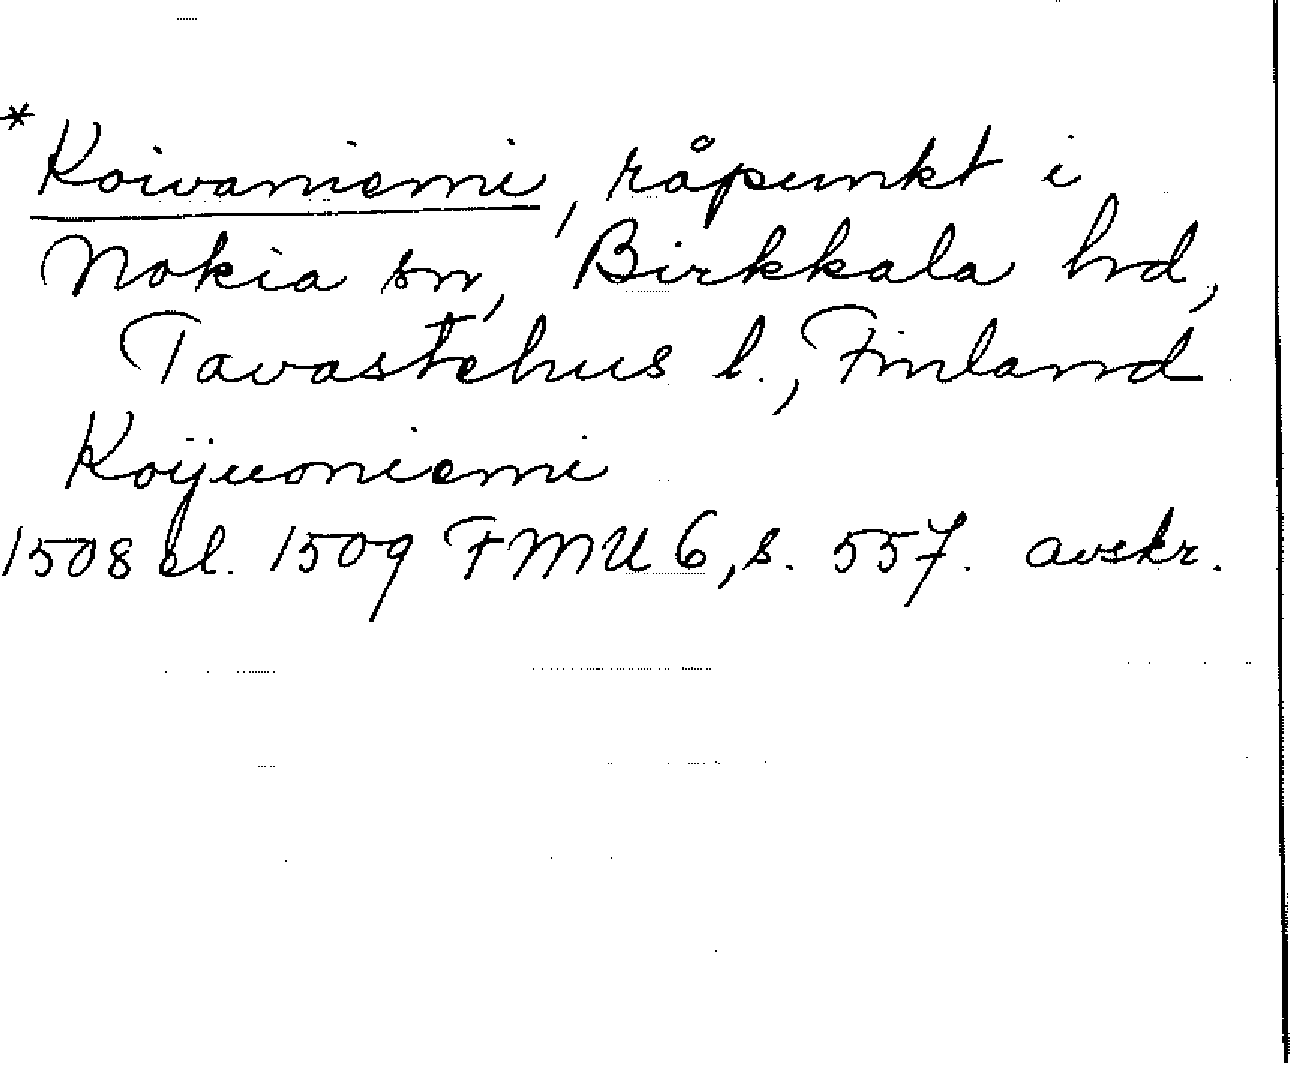 *Koivaniemi, råpunkt i
Nokia sn, Birkkala hd,
Tavastehus l., Finland
Koijuoniemi
1508 el. 1509 FMU 6, s. 557. avskr.